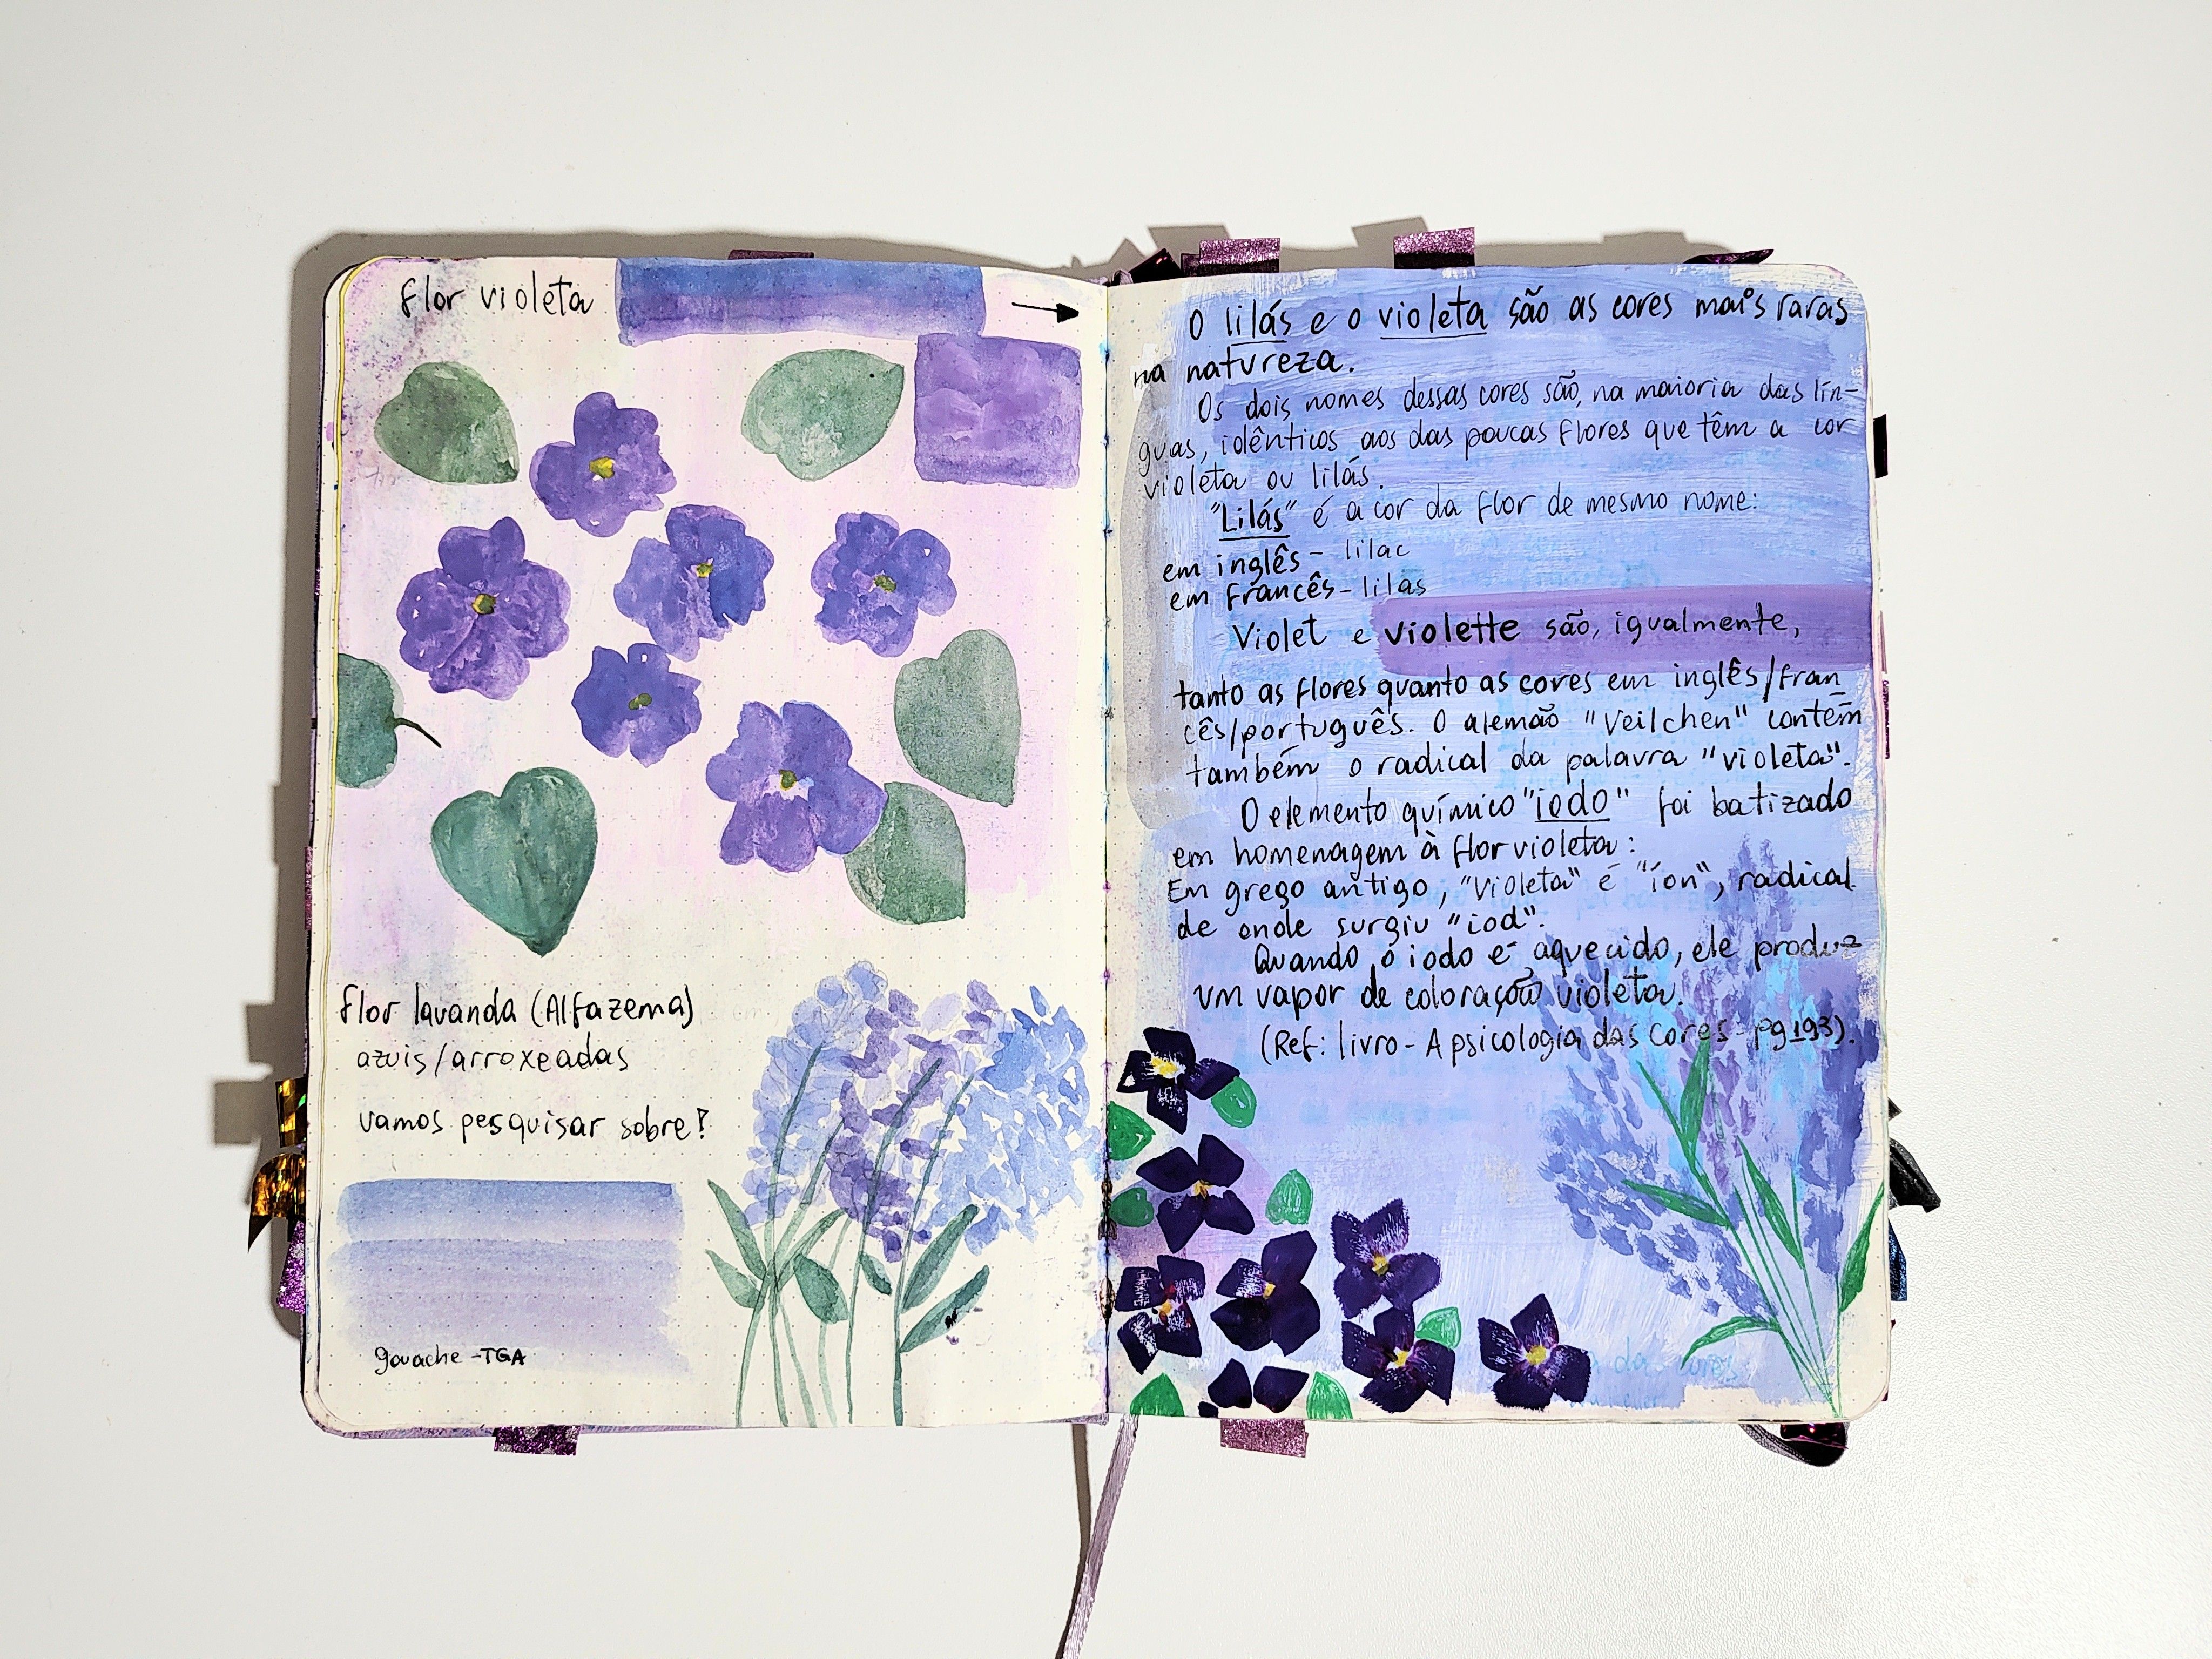 flor violeta
flor lavanda (Alfazema)
azuis/arroxeadas
vamos pesquisar sobre?
gouache -TGA
O lilás e o violeta são as cores mais raras
na natureza.
Os dois nomes dessas cores são, na maioria das lín-
guas, idênticos aos das poucas flores que têm a cor
violeta ou lilás.
"Lilás" é a cor da flor de mesmo nome:
em inglês - lilac
em francês - lilas
Violet e violette são, igualmente,
tanto as flores quanto as cores em inglês/fran
cês/português. O alemão "Veilchen" contém
também o radical da palavra "violeta".
O elemento químico "iodo" foi batizado
em homenagem à flor violeta:
Em grego antigo, "violeta" é "íon", radical
de onde surgiu "iod".
Quando o iodo é aquecido, ele produz
um vapor de coloração violeta.
(Ref: livro - A psicologia das cores - pg 193).